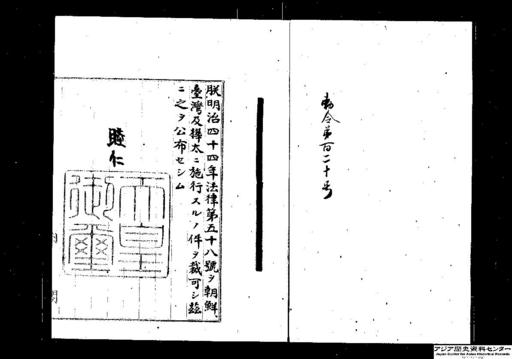 勅令第百二十号
朕明治四十四年法律第五十八號ヲ朝鮮
臺灣及樺太ニ施行スルノ件ヲ裁可シ玆
ニ之ヲ公布セシム
睦仁
天皇
御璽
内
閣
アジア歴史資料センター
Japan Center for Asian Historical Records